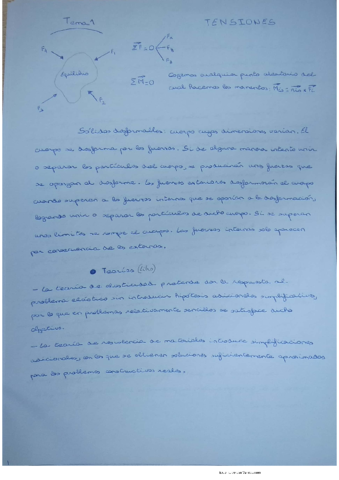 Tema 1
TENSIONES
F₂ F₁
Equilibrio
F₃ F₄
ΣF̄=0
Fx
Fy
Fz
ΣM̄=0
Cogemos cualquier punto aleatorio del
cual hacemos los momentos.
Sólidos deformables: cuerpo cuyas dimensiones varían. El
cuerpo se deforma por las fuerzas. Si de alguna manera intento unir
o separar las partículas del cuerpo, se producirán unas fuerzas que
se opongan al deforme. Las fuerzas exteriores deformarán el cuerpo
cuando superan a las fuerzas internas que se oponen a la deformación,
logrando unir o separar las partículas de dicho cuerpo. Si se superan
unos límites se rompe el cuerpo. Las fuerzas internas solo aparecen
por consecuencia de las externas.
● Teorías
– La teoría de elasticidad pretende dar la respuesta al
problema elástico sin introducir hipótesis adicionales simplificativas,
por lo que en problemas relativamente sencillos se satisface dicho
objetivo.
– La teoría de resistencia de materiales introduce simplificaciones
adicionales, en las que se obtienen soluciones suficientemente aproximadas
para los problemas constructivos reales.